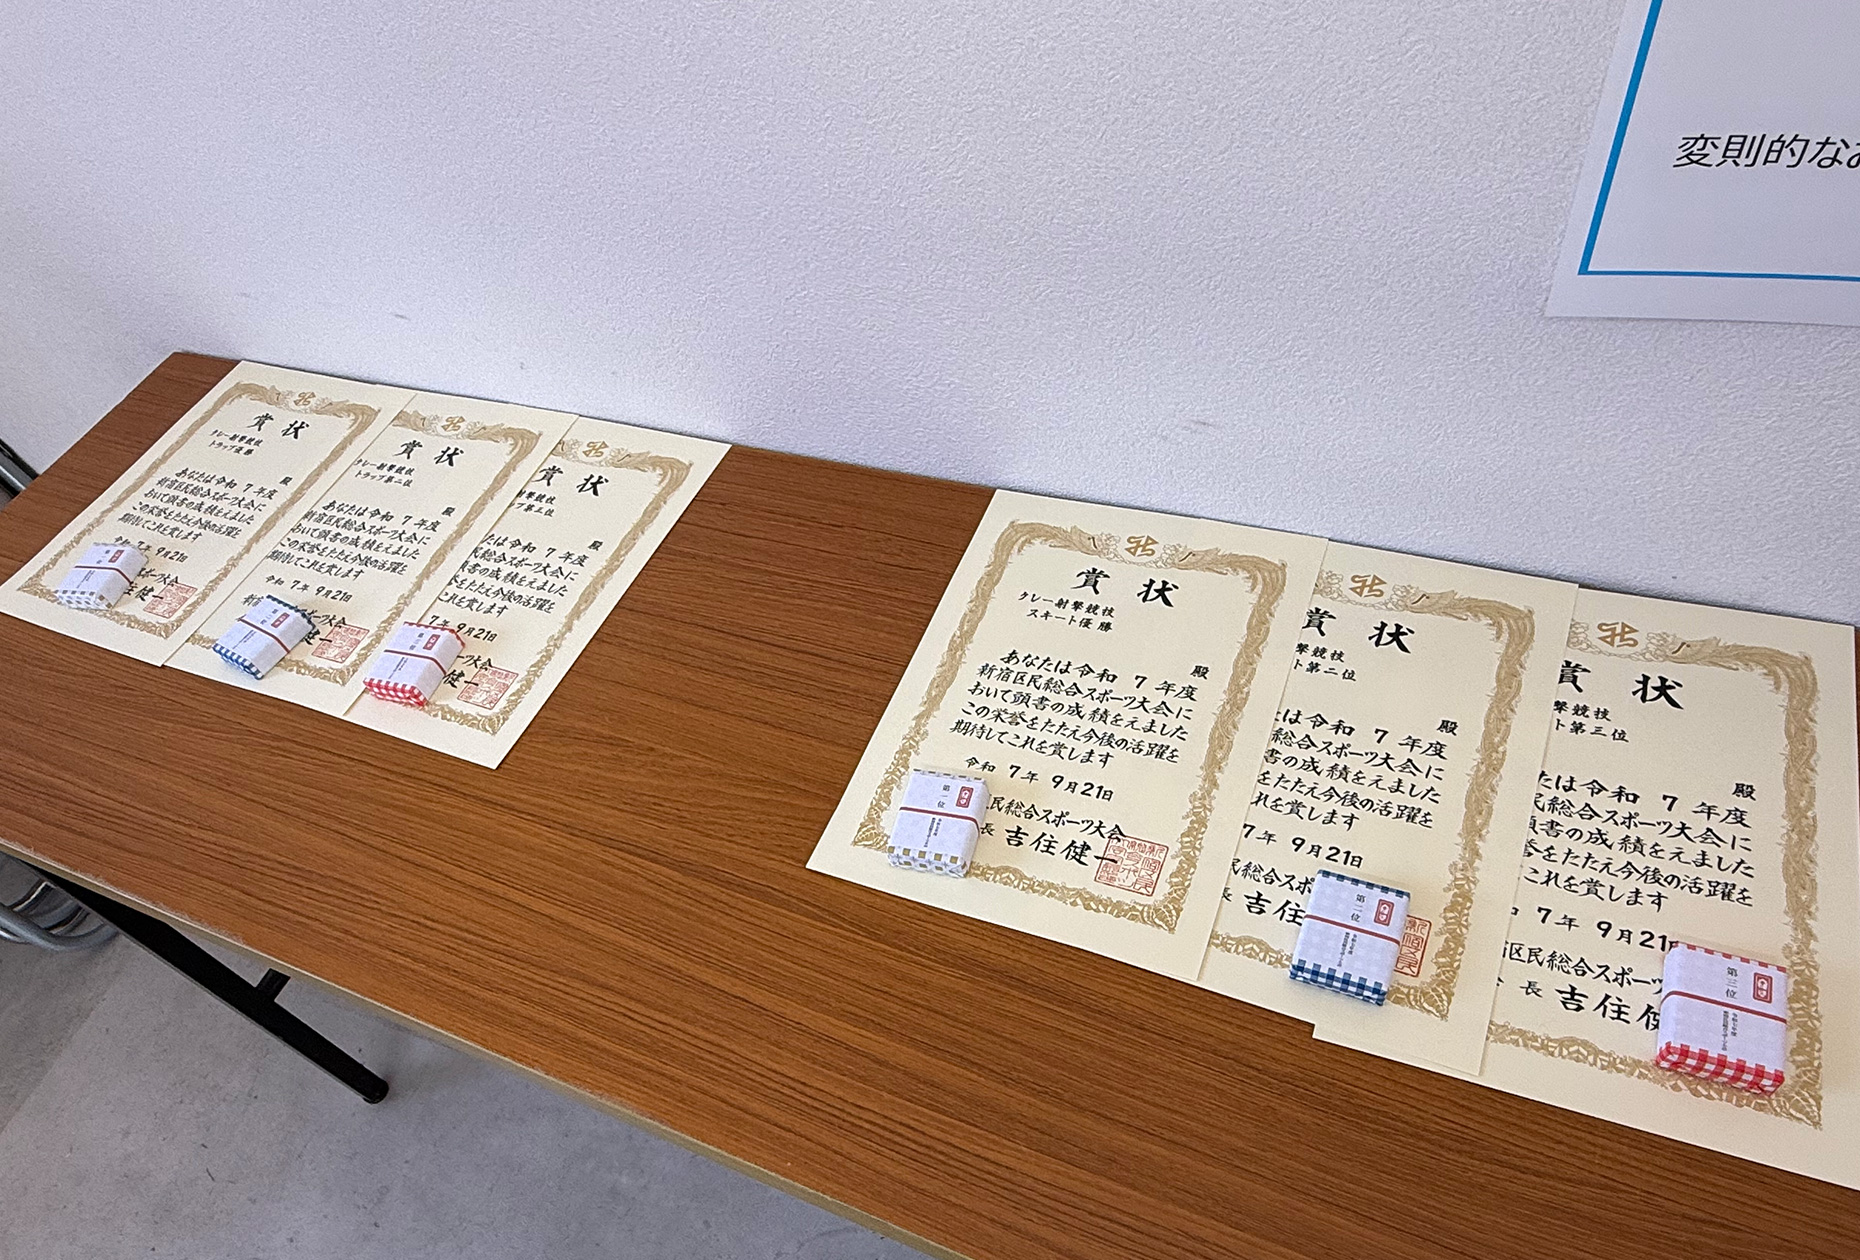 変則的なお
賞状
クレー射撃競技
トラップ優勝
殿
あなたは令和7年度
新宿区民総合スポーツ大会に
おいて頭書の成績をえました
この栄誉をたたえ今後の活躍を
期待してこれを賞します
令和7年9月21日
スポーツ大会
健一
賞状
クレー射撃競技
トラップ第二位
殿
あなたは令和7年度
新宿区民総合スポーツ大会に
おいて頭書の成績をえました
この栄誉をたたえ今後の活躍を
期待してこれを賞します
令和7年9月21日
新宿
ーツ大会
健一
賞状
射撃競技
ップ第三位
殿
たは令和7年度
民総合スポーツ大会に
頭書の成績をえました
をたたえ今後の活躍を
これを賞します
7年9月21日
ーツ大会
健一
賞状
クレー射撃競技
スキート優勝
殿
あなたは令和7年度
新宿区民総合スポーツ大会に
おいて頭書の成績をえました
この栄誉をたたえ今後の活躍を
期待してこれを賞します
令和7年9月21日
民総合スポーツ大会
長 吉住健一
第一位
賞状
撃競技
ト第二位
殿
には令和7年度
総合スポーツ大会に
書の成績をえました
をたたえ今後の活躍を
れを賞します
7年9月21日
民総合スポ
長 吉住
第二位
賞状
撃競技
ト第三位
殿
たは令和7年度
民総合スポーツ大会に
頭書の成績をえました
誉をたたえ今後の活躍を
これを賞します
7年9月21日
区民総合スポーツ
会長 吉住健
第三位